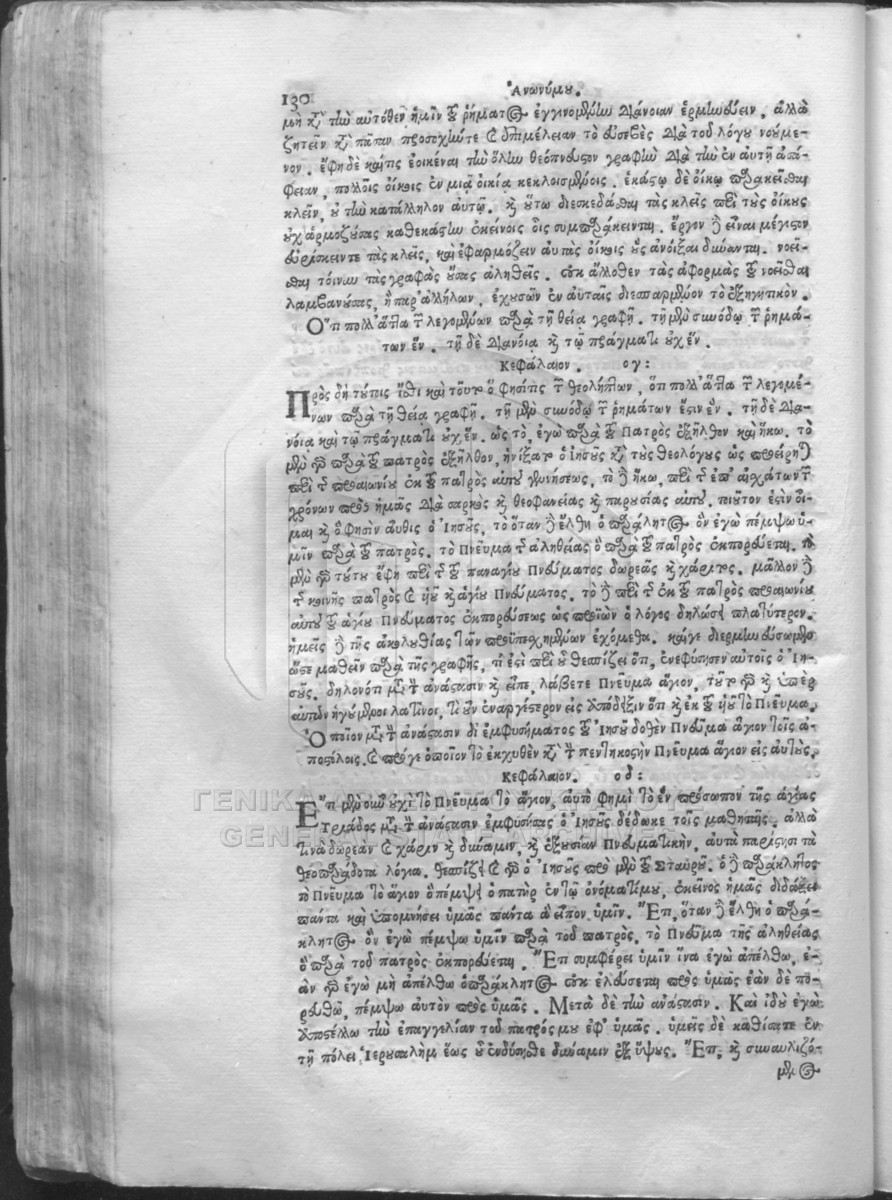 130
Ἀνωνύμου.
μὴ κατὰ τὴν αὐτόθεν ἡμῖν τοῦ ῥήματος ἐγγινομένην διάνοιαν ἑρμηνεύειν, ἀλλὰ
ζητεῖν κατὰ πᾶσαν προσοχήντε καὶ ἐπιμέλειαν τὸ εὐσεβὲς διὰ τοῦ λόγου νοούμε-
νον. ἔφη δὲ καί τις ἐοικέναι τὴν ὅλην θεόπνευστον γραφὴν διὰ τὴν ἐν αὐτῇ ἀσά-
φειαν, πολλοῖς οἴκοις ἐν μιᾷ οἰκίᾳ κεκλεισμένοις. ἑκάστῳ δὲ οἴκῳ παρακεῖσθαι
κλεῖν, οὐ τὴν κατάλληλον αὐτῷ. καὶ οὕτω διεσκεδάσθαι τὰς κλεῖς περὶ τοὺς οἴκους
οὐχ ἁρμοζούσας καθεκάστην ἐκείνοις οἷς συμπαράκεινται. ἔργον δὲ εἶναι μέγιστον
εὑρίσκειν τε τὰς κλεῖς, καὶ ἐφαρμόζειν αὐτὰς οἴκοις οὓς ἀνοῖξαι δύνανται. νοεῖ-
σθαι τοίνυν τὰς γραφὰς οὔσας ἀληθεῖς. οὐκ ἄλλοθεν τὰς ἀφορμὰς τοῦ νοεῖσθαι
λαμβανούσας, ἢ παρ' ἀλλήλων, ἐχουσῶν ἐν αὐταῖς διεσπαρμένον τὸ ἐξηγητικόν.
Ὅτι πολλάττα τῶν λεγομένων παρὰ τῇ θεία γραφῇ. τῇ μὲν συνόδῳ τῶν ῥημά-
των ἕν. τῇ δὲ διανοία καὶ τῷ πράγματι οὐχ ἕν.
Κεφάλαιον. ογ:
Πρὸς δὴ τύποις ἴσθι καὶ τοῦτο ὅ φησί τις τῶν θεολήπτων, ὅτι πολλάττα τῶν λεγομέ-
νων παρὰ τῇ θεία γραφῇ. τῇ μὲν συνόδῳ τῶν ῥημάτων ἐστιν ἕν. τῇ δὲ δια-
νοία καὶ τῷ πράγματι οὐχ ἕν. ὡς τὸ, ἐγὼ παρὰ τοῦ Πατρὸς ἐξῆλθον καὶ ἥκω. τὸ
μὲν γὰρ παρὰ τοῦ πατρὸς ἐξῆλθον, ᾐνίξατο ὁ Ἰησοῦς κατὰ τοὺς θεολόγους ὡς προείρηται
περὶ τῆς προαιωνίου ἐκ τοῦ πατρὸς αὐτοῦ γεννήσεως, τὸ δὲ ἥκω, περὶ τῆς ἐπ' ἐσχάτων τῶν
χρόνων πρὸς ἡμᾶς διὰ σαρκὸς καὶ θεοφανείας καὶ παρουσίας αὐτοῦ. τοιοῦτον ἐστὶν οἶ-
μαι καὶ ὅ φησὶν αὖθις ὁ Ἰησοῦς, τὸ ὅταν δὲ ἔλθη ὁ παράκλητος ὃν ἐγὼ πέμψω ὑ-
μῖν παρὰ τοῦ πατρὸς. τὸ Πνεῦμα τῆς ἀληθείας ὃ παρὰ τοῦ πατρὸς ἐκπορεύεται. τὸ
μὲν γὰρ τούτου ἔφη περὶ τῆς τοῦ παναγίου Πνεύματος δωρεᾶς καὶ χάριτος. μᾶλλον δὲ
τῆς κοινῆς πατρὸς καὶ υἱοῦ καὶ ἁγίου Πνεύματος. τὸ δὲ περὶ τῆς ἐκ τοῦ πατρὸς προαιωνίου
αὐτοῦ τοῦ ἁγίου Πνεύματος ἐκπορεύσεως ὡς προϊὼν ὁ λόγος δηλώσει πλατύτερον.
ἡμεῖς δὲ τῆς ἀκολουθίας τῶν προϋπεσχημένων ἐχόμεθα. καίγε διερμηνεύσωμεν
ὥστε μαθεῖν παρὰ τῆς γραφῆς, τί ἐστὶ περὶ οὗ θεσπίζει ὅτι, ἐνεφύσησεν αὐτοῖς ὁ Ἰη-
σοῦς. δηλονότι μετὰ τὴν ἀνάστασιν καὶ εἶπε, λάβετε Πνεῦμα ἅγιον, τοῦτο γὰρ καὶ ὑπὲρ
αὐτῶν ἡγούμενοι λατῖνοι, ἐναργέστερον εἰς ἀπόδειξιν ὅτι καὶ ἐκ τοῦ υἱοῦ τὸ Πνεῦμα.
Ὁποῖον μετὰ τὴν ἀνάστασιν δι ἐμφυσήματος τοῦ Ἰησοῦ δοθὲν Πνεῦμα ἅγιον τοῖς ἀ-
ποστόλοις. καὶ πρόγε ὁποῖον τὸ ἐκχυθὲν κατὰ τὴν πεντηκοστὴν Πνεῦμα ἅγιον εἰς αὐτοὺς.
Κεφάλαιον. οδ:
Ἔτι μὲν οὖν οὐχὶ τὸ Πνεῦμα τὸ ἅγιον, αὐτὸ φημὶ τὸ ἓν πρόσωπον τῆς ἁγίας
Τριάδος μετὰ τὴν ἀνάστασιν ἐμφυσήσας ὁ Ἰησοῦς δέδωκε τοῖς μαθηταῖς. ἀλλὰ
τινὰ δωρεὰν καὶ χάριν καὶ δύναμιν, καὶ ἐξουσίαν Πνευματικὴν, αὐτὰ παρίστησι τὰ
θεοπαράδοτα λόγια. θεσπίζει γὰρ ὁ Ἰησοῦς πρὸ μὲν τοῦ Σταυροῦ. ὁ δὲ παράκλητος
τὸ Πνεῦμα τὸ ἅγιον ὃ πέμψει ὁ πατὴρ ἐν τῷ ὀνόματί μου, ἐκεῖνος ἡμᾶς διδάξει
πάντα καὶ ὑπομνήσει ὑμᾶς πάντα ἃ εἶπον ὑμῖν. Ἔτι, ὅταν δὲ ἔλθη ὁ παρά-
κλητος ὃν ἐγὼ πέμψω ὑμῖν παρὰ τοῦ πατρὸς, τὸ Πνεῦμα τῆς ἀληθείας
ὃ παρὰ τοῦ πατρὸς ἐκπορεύεται. Ἔτι συμφέρει ὑμῖν ἵνα ἐγὼ ἀπέλθω, ἐ-
ὰν γὰρ ἐγὼ μὴ ἀπέλθω ὁ παράκλητος οὐκ ἐλεύσεται πρὸς ὑμᾶς ἐὰν δὲ πο-
ρευθῶ, πέμψω αὐτὸν πρὸς ὑμᾶς. Μετὰ δὲ τὴν ἀνάστασιν. Καὶ ἰδοὺ ἐγὼ
ἀποστέλλω τὴν ἐπαγγελίαν τοῦ πατρός μου ἐφ' ὑμᾶς. ὑμεῖς δὲ καθίσατε ἐν
τῇ πόλει Ἱερουσαλὴμ ἕως οὗ ἐνδύσησθε δύναμιν ἐξ ὕψους. Ἔτι, καὶ συναυλιζό-
μενος
ΓΕΝΙΚΑ ΑΡΧΕΙΑ ΤΟΥ ΚΡΑΤΟΥΣ
GENERAL STATE ARCHIVES